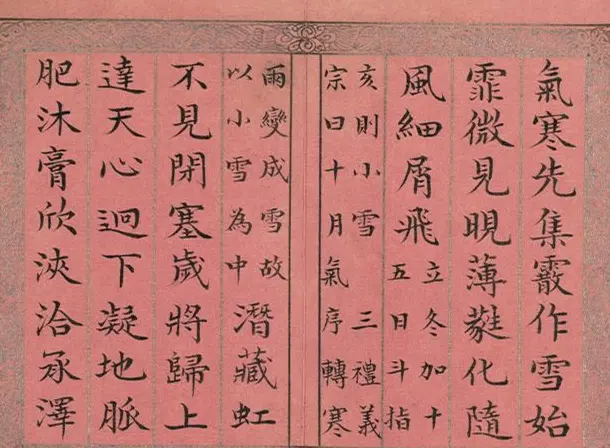 氣寒先集霰作雪始
霏微見晛薄化隨
風細屑飛
立冬加十
五日斗指
亥則小雪 三禮義
宗曰十月氣序轉寒
雨變成雪故
以小雪為中
潛藏虹
不見閉塞歲將歸上
達天心逈下凝地脈
肥沐膏欣浹洽承澤